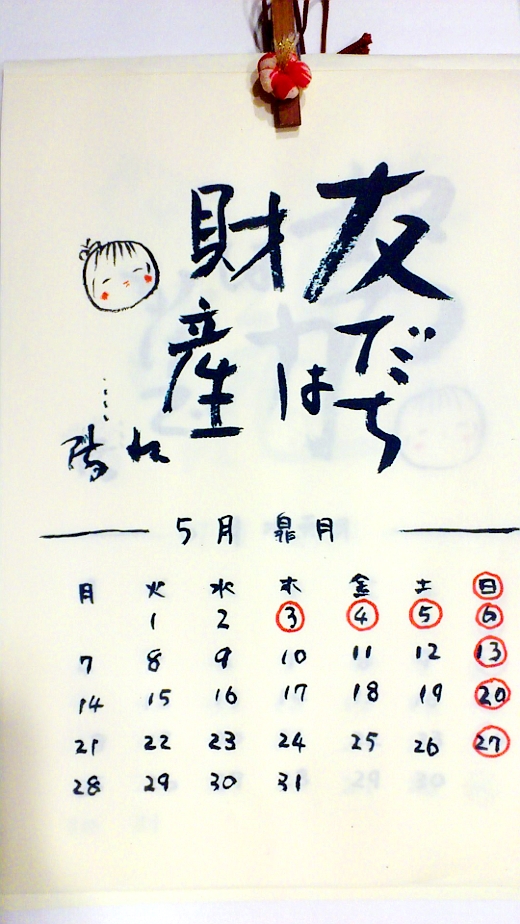 友だち
は
財産
5月 皐月
月 火 水 木 金 土 日
1 2 3 4 5 6
7 8 9 10 11 12 13
14 15 16 17 18 19 20
21 22 23 24 25 26 27
28 29 30 31